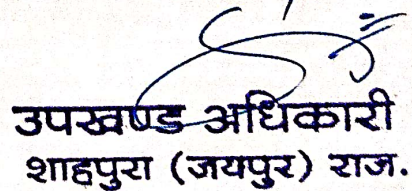 उपखण्ड अधिकारी
शाहपुरा (जयपुर) राज.